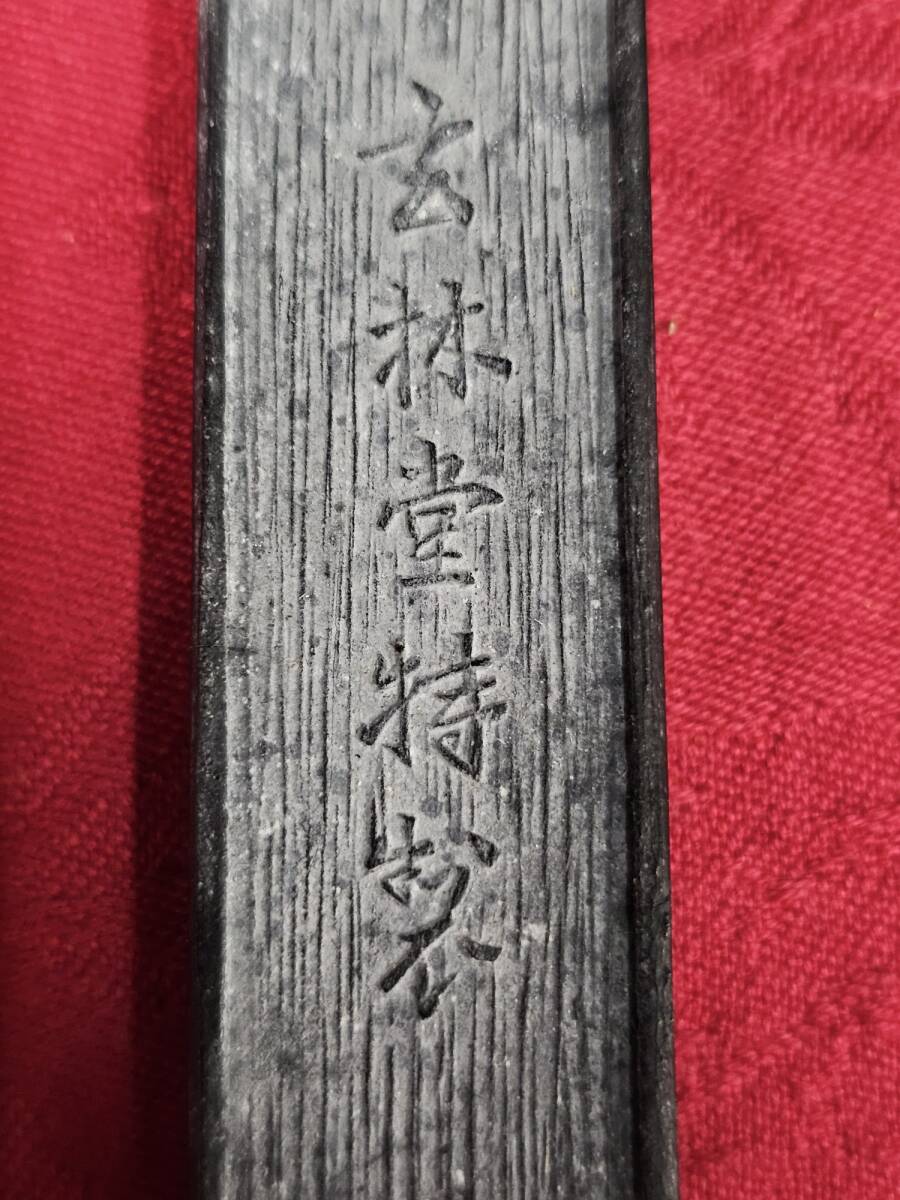 玄林堂特製